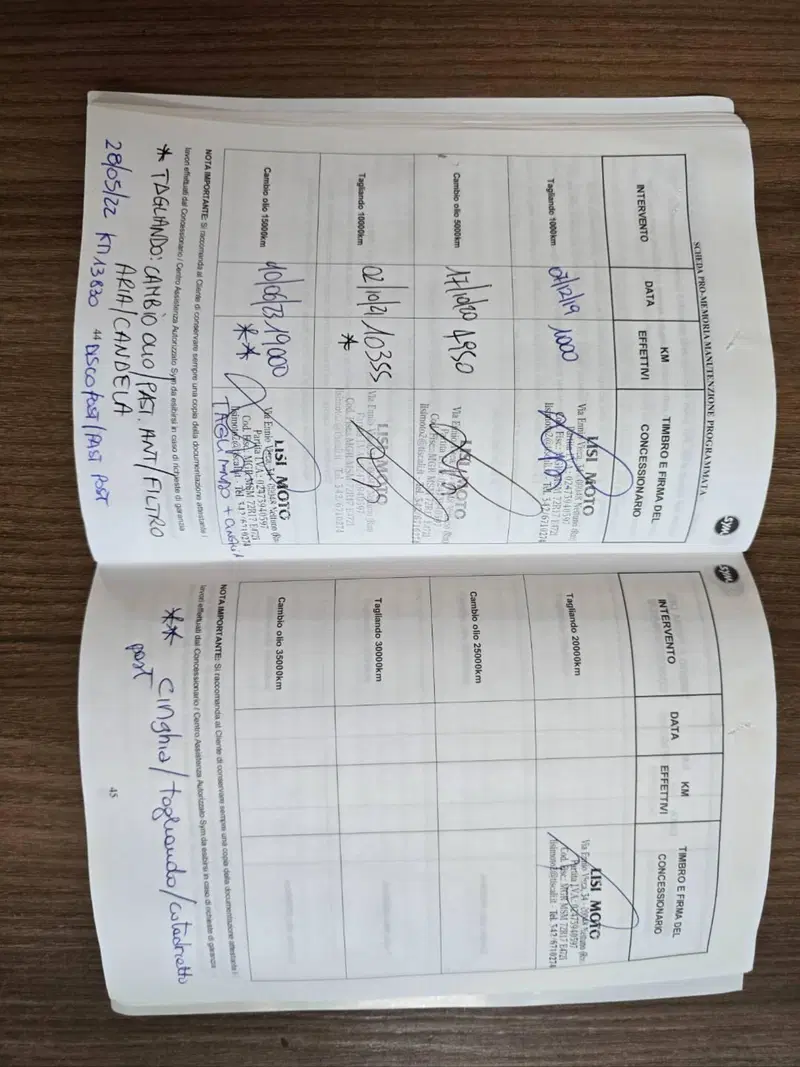 SCHEDA PRO-MEMORIA MANUTENZIONE PROGRAMMATA
SYM
INTERVENTO DATA KM EFFETTIVI TIMBRO E FIRMA DEL CONCESSIONARIO
Tagliando 1000km 07/12/19 1000
LISI MOTO
Cambio olio 5000km 17/10/20 4950
MOTO
Tagliando 10000km 02/10/21 10355 *
LISI MOTO
Cambio olio 15000km 10/06/23 19000 **
LISI MOTO
Partita I.V.A. 02475940597
Cod. Fisc. MGR MSM 72R17 E472I
Tel. 347/6710274
TAGLIANDO +
NOTA IMPORTANTE: Si raccomanda al Cliente di conservare sempre una copia della documentazione attestante i
lavori effettuati dal Concessionario / Centro Assistenza Autorizzato Sym da esibirsi in caso di richieste di garanzia
* TAGLIANDO: CAMBIO OLIO/PAST. ANT/FILTRO
ARIA/CANDELA
44
28/05/22 KM 13830 DISCO POST/PAST POST
SYM
INTERVENTO DATA KM EFFETTIVI TIMBRO E FIRMA DEL CONCESSIONARIO
Tagliando 20000km
LISI MOTO
Partita I.V.A. 02475940597
Cod. Fisc. MGR MSM 72R17 E472I
lisimoto2@tiscali.it Tel. 347/6710274
Cambio olio 25000km
Tagliando 30000km
Cambio olio 35000km
NOTA IMPORTANTE: Si raccomanda al Cliente di conservare sempre una copia della documentazione attestante i
lavori effettuati dal Concessionario / Centro Assistenza Autorizzato Sym da esibirsi in caso di richieste di garanzia
** cinghia/tagliando/copertone
post
45